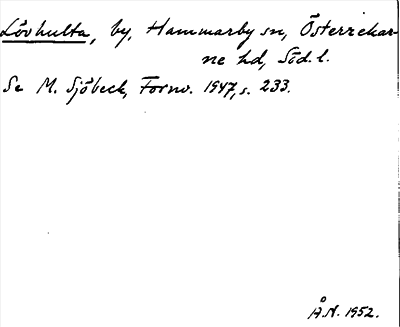 Lövhulta, by, Hammarby sn, Österrekar-
ne hd, Söd. l.
Se M. Sjöbeck, Fornv. 1947, s. 233.
Å.N. 1952.